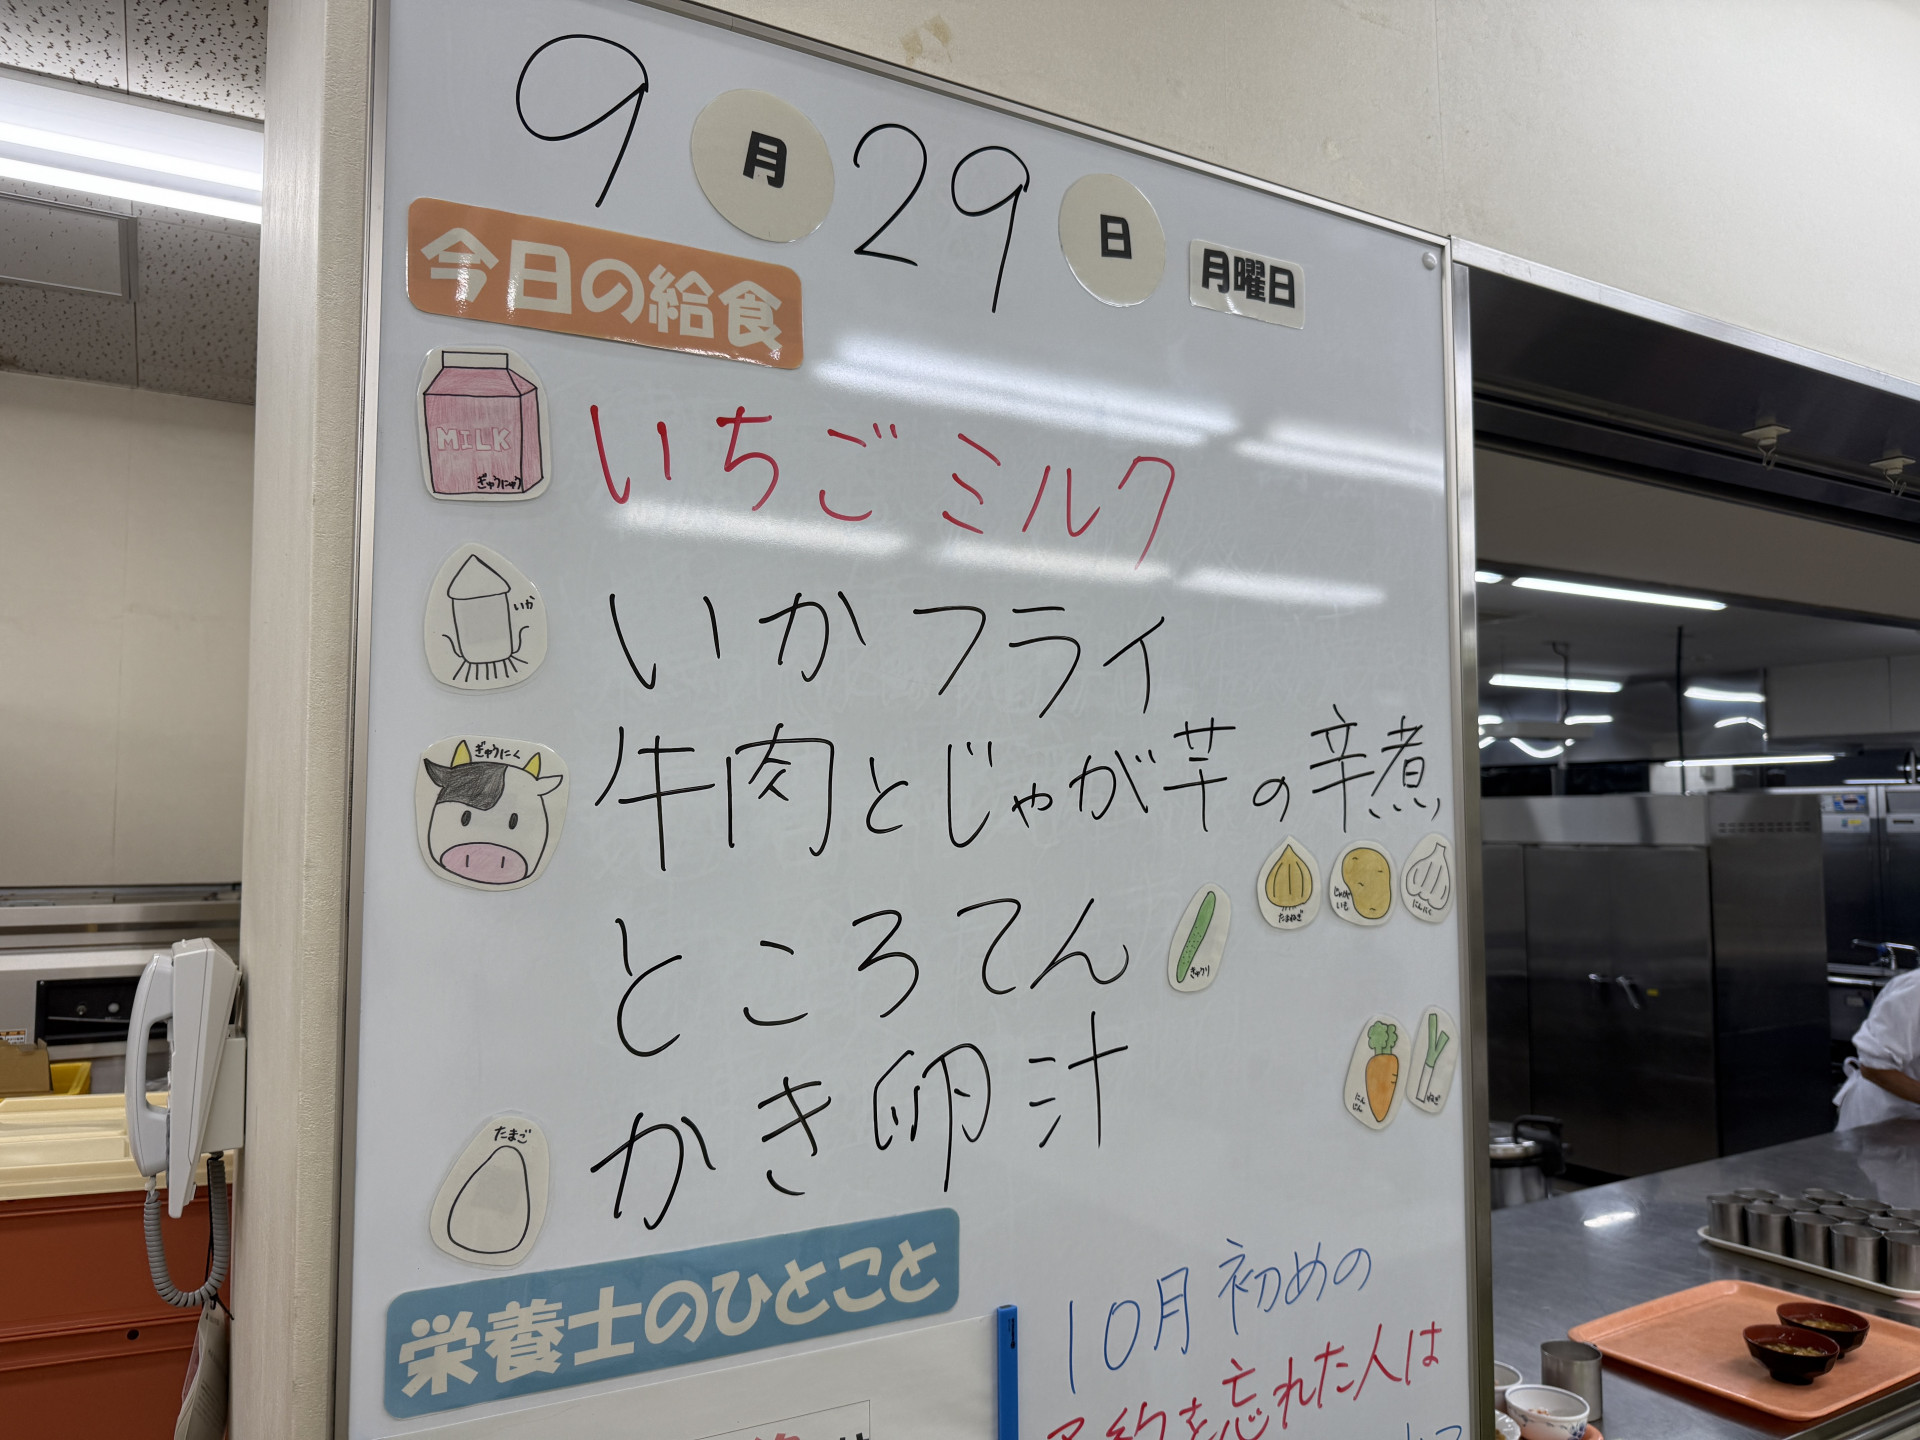 9月29日 月曜日
今日の給食
MILK
ぎゅうにゅう
いちごミルク
いか
いかフライ
ぎゅうにく
牛肉とじゃが芋の辛煮
たまねぎ
じゃがいも
にんにく
ところてん
きゅうり
にんじん
ねぎ
たまご
かき卵汁
栄養士のひとこと
10月初めの
予約を忘れた人は